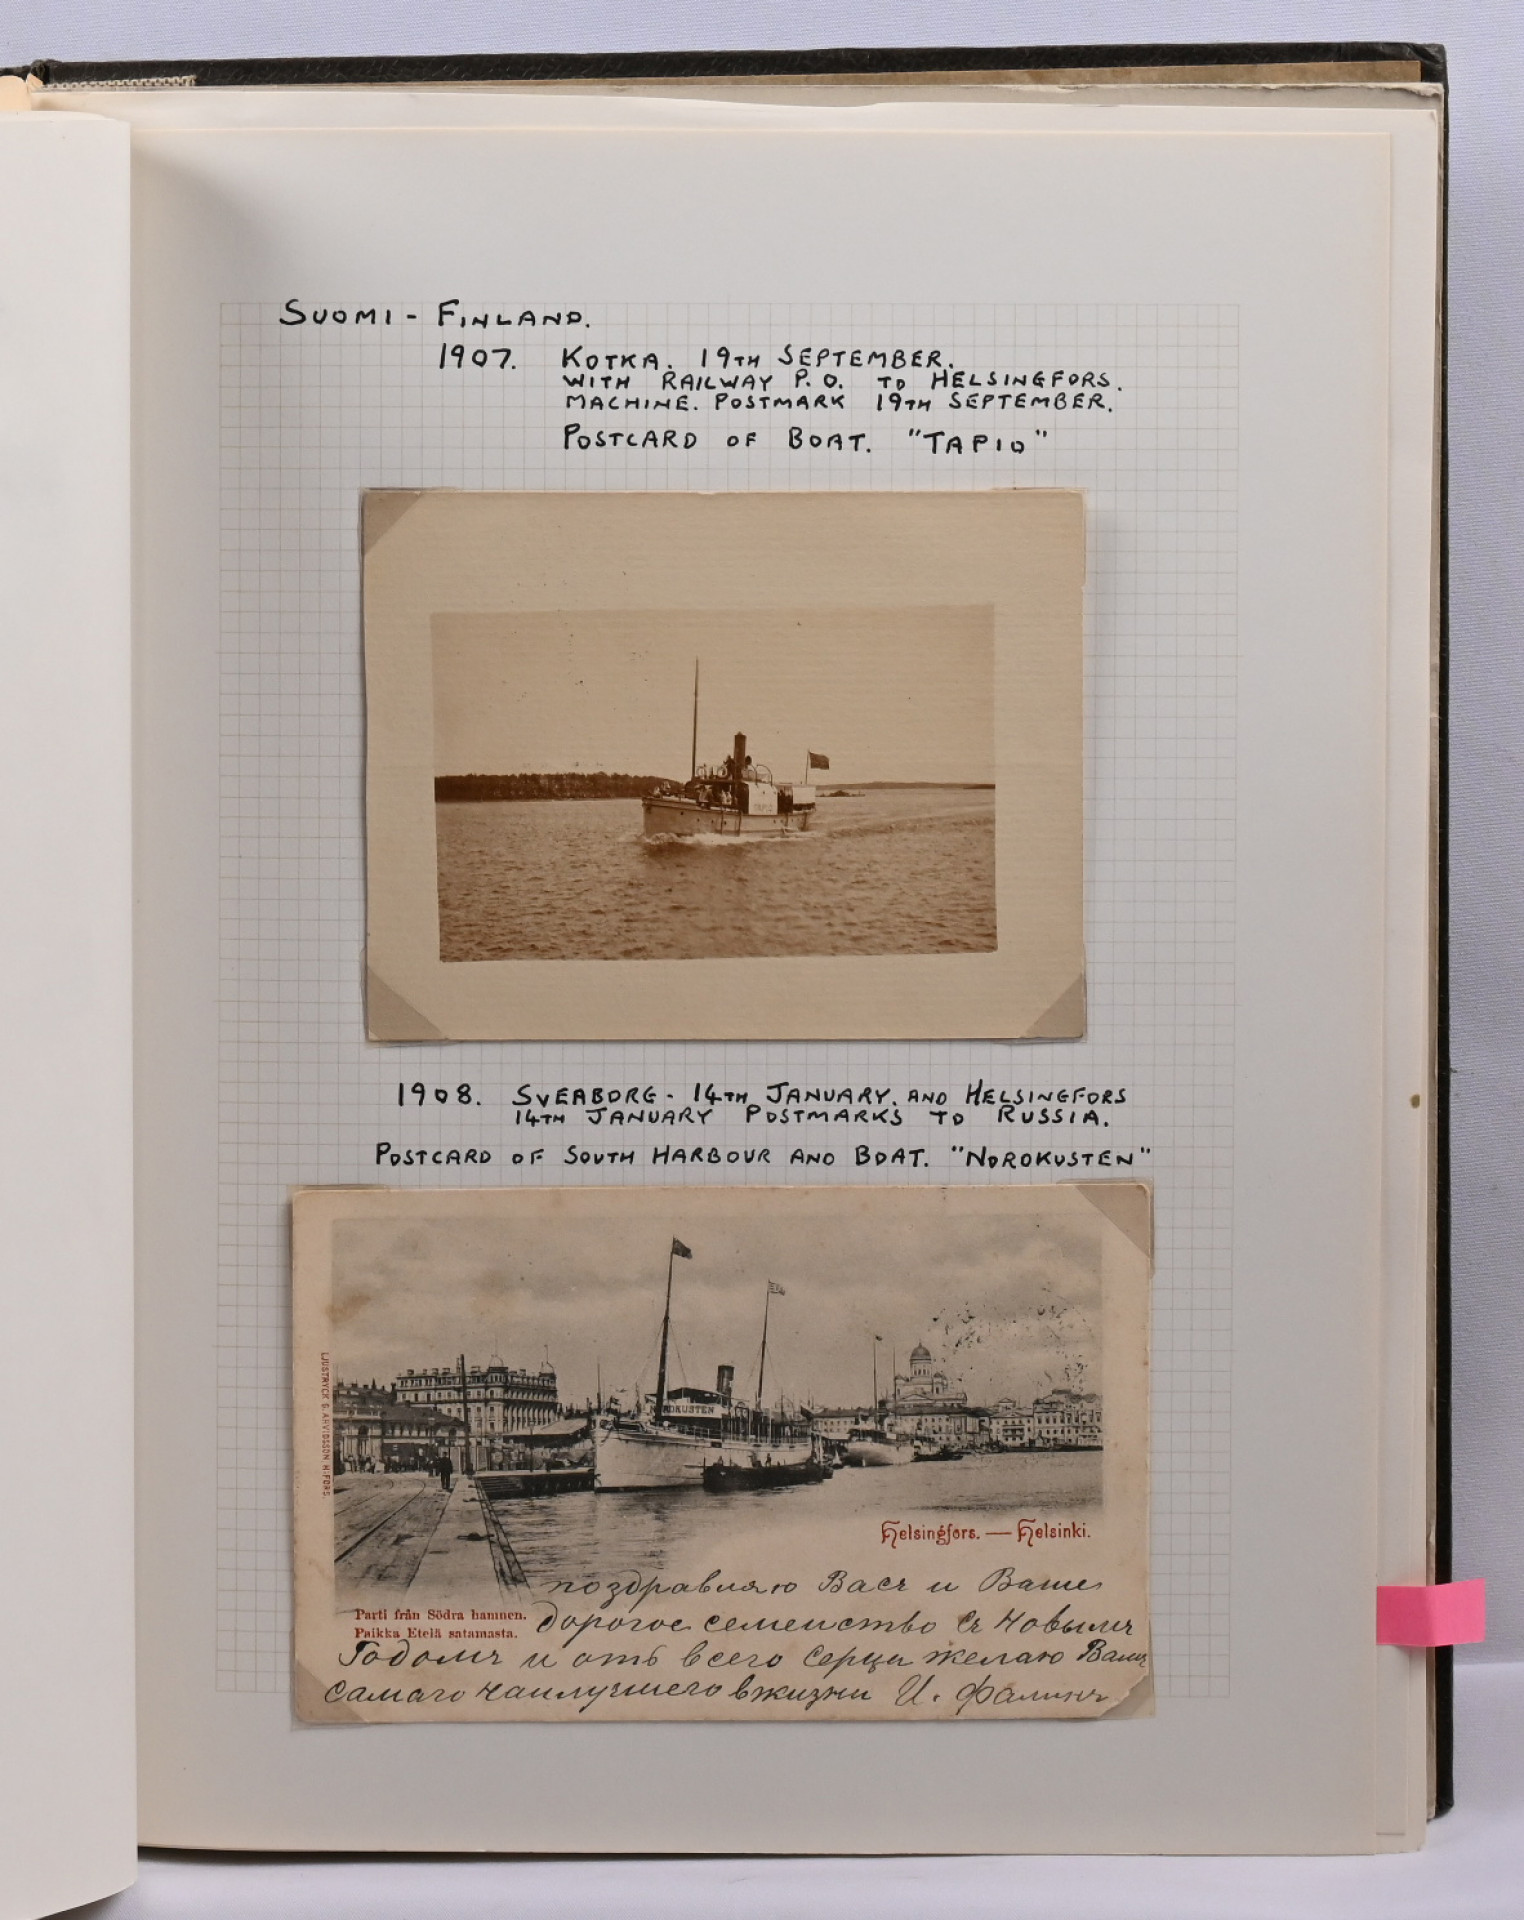 SUOMI - FINLAND.
1907. KOTKA. 19TH SEPTEMBER.
WITH RAILWAY P.O. TO HELSINGFORS.
MACHINE. POSTMARK 19TH SEPTEMBER.
POSTCARD OF BOAT. "TAPIO"
TAPIO
1908. SVEABORG - 14TH JANUARY. AND HELSINGFORS
14TH JANUARY POSTMARKS TO RUSSIA.
POSTCARD OF SOUTH HARBOUR AND BOAT. "NORDKUSTEN"
NORDKUSTEN
LJUSTRYCK G. ARVIDSSON H:FORS.
Helsingfors. — Helsinki.
Parti från Södra hamnen.
Paikka Etelä satamasta.
поздравляю Васъ и Ваше
дорогое семейство съ новымъ
Годомъ и отъ всего серца желаю Вамъ
самаго наилучшего в жизни И.